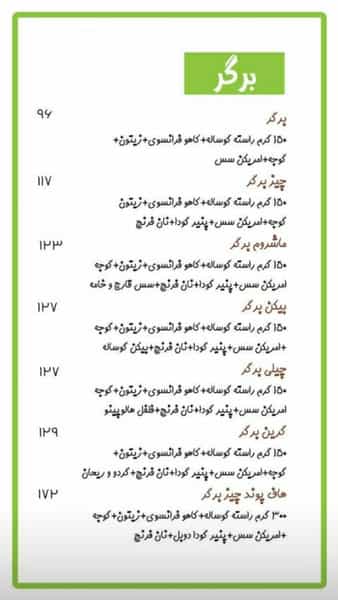 برگر
برگر ۹۶
۱۵۰ گرم راسته گوساله+کاهو فرانسوی+زیتون+
گوجه+امریکن سس
چیز برگر ۱۱۷
۱۵۰ گرم راسته گوساله+کاهو فرانسوی+زیتون
گوجه+امریکن سس+پنیر گودا+نان فرنچ
ماشروم برگر ۱۲۳
۱۵۰ گرم راسته گوساله+کاهو فرانسوی+زیتون+گوجه
امریکن سس+پنیر گودا+نان فرنچ+سس قارچ و خامه
بیکن برگر ۱۲۷
۱۵۰ گرم راسته گوساله+کاهو فرانسوی+زیتون+گوجه
+امریکن سس+پنیر گودا+نان فرنچ+بیکن گوساله
چیلی برگر ۱۲۷
۱۵۰ گرم راسته گوساله+کاهو فرانسوی+زیتون+گوجه
امریکن سس+پنیر گودا+نان فرنچ+فلفل هالوپینو
گرین برگر ۱۲۹
۱۵۰ گرم راسته گوساله+کاهو فرانسوی+زیتون+
گوجه+امریکن سس+پنیر گودا+نان فرنچ+گردو و ریحان
هاف پوند چیز برگر ۱۷۲
۳۰۰ گرم راسته گوساله+کاهو فرانسوی+زیتون+گوجه
+امریکن سس+پنیر گودا دوبل+نان فرنچ